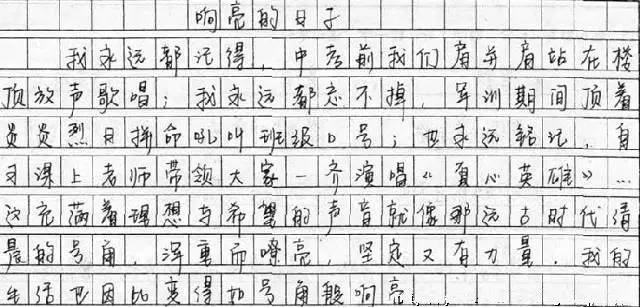 响亮的日子
我永远都记得，中考前我们肩并肩站在楼
顶放声歌唱；我永远都忘不掉，军训期间顶着
炎炎烈日拼命吼叫班级口号；也永远铭记，自
习课上老师带领大家一齐演唱《真心英雄》…
这充满着理想与希望的声音就像那远古时代清
晨的号角，深重而嘹亮，坚定又有力量，我的
生活也因此变得如号角般响亮